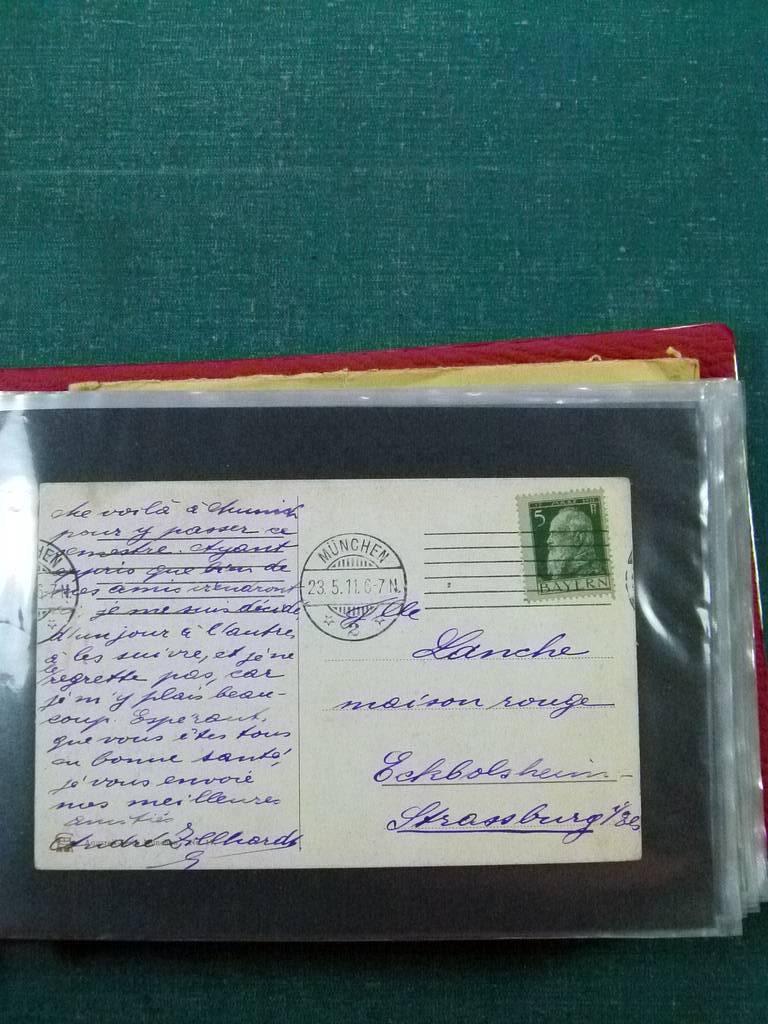 Me voilà à Munich
pour y passer ce
semestre. Ayant
appris que bien de
mes amis viendront
je me suis décidé,
d'un jour à l'autre,
à les suivre, et je ne
le regrette pas, car
je m'y plais beau-
coup. Espérant,
que vous êtes tous
en bonne santé,
je vous envoie
mes meilleures
amitiés
André
MÜNCHEN
23.5.11.6-7 N.
2
5
BAYERN
Mlle
Lanche
maison rouge
Eckbolsheim-
Strassburg i/Els